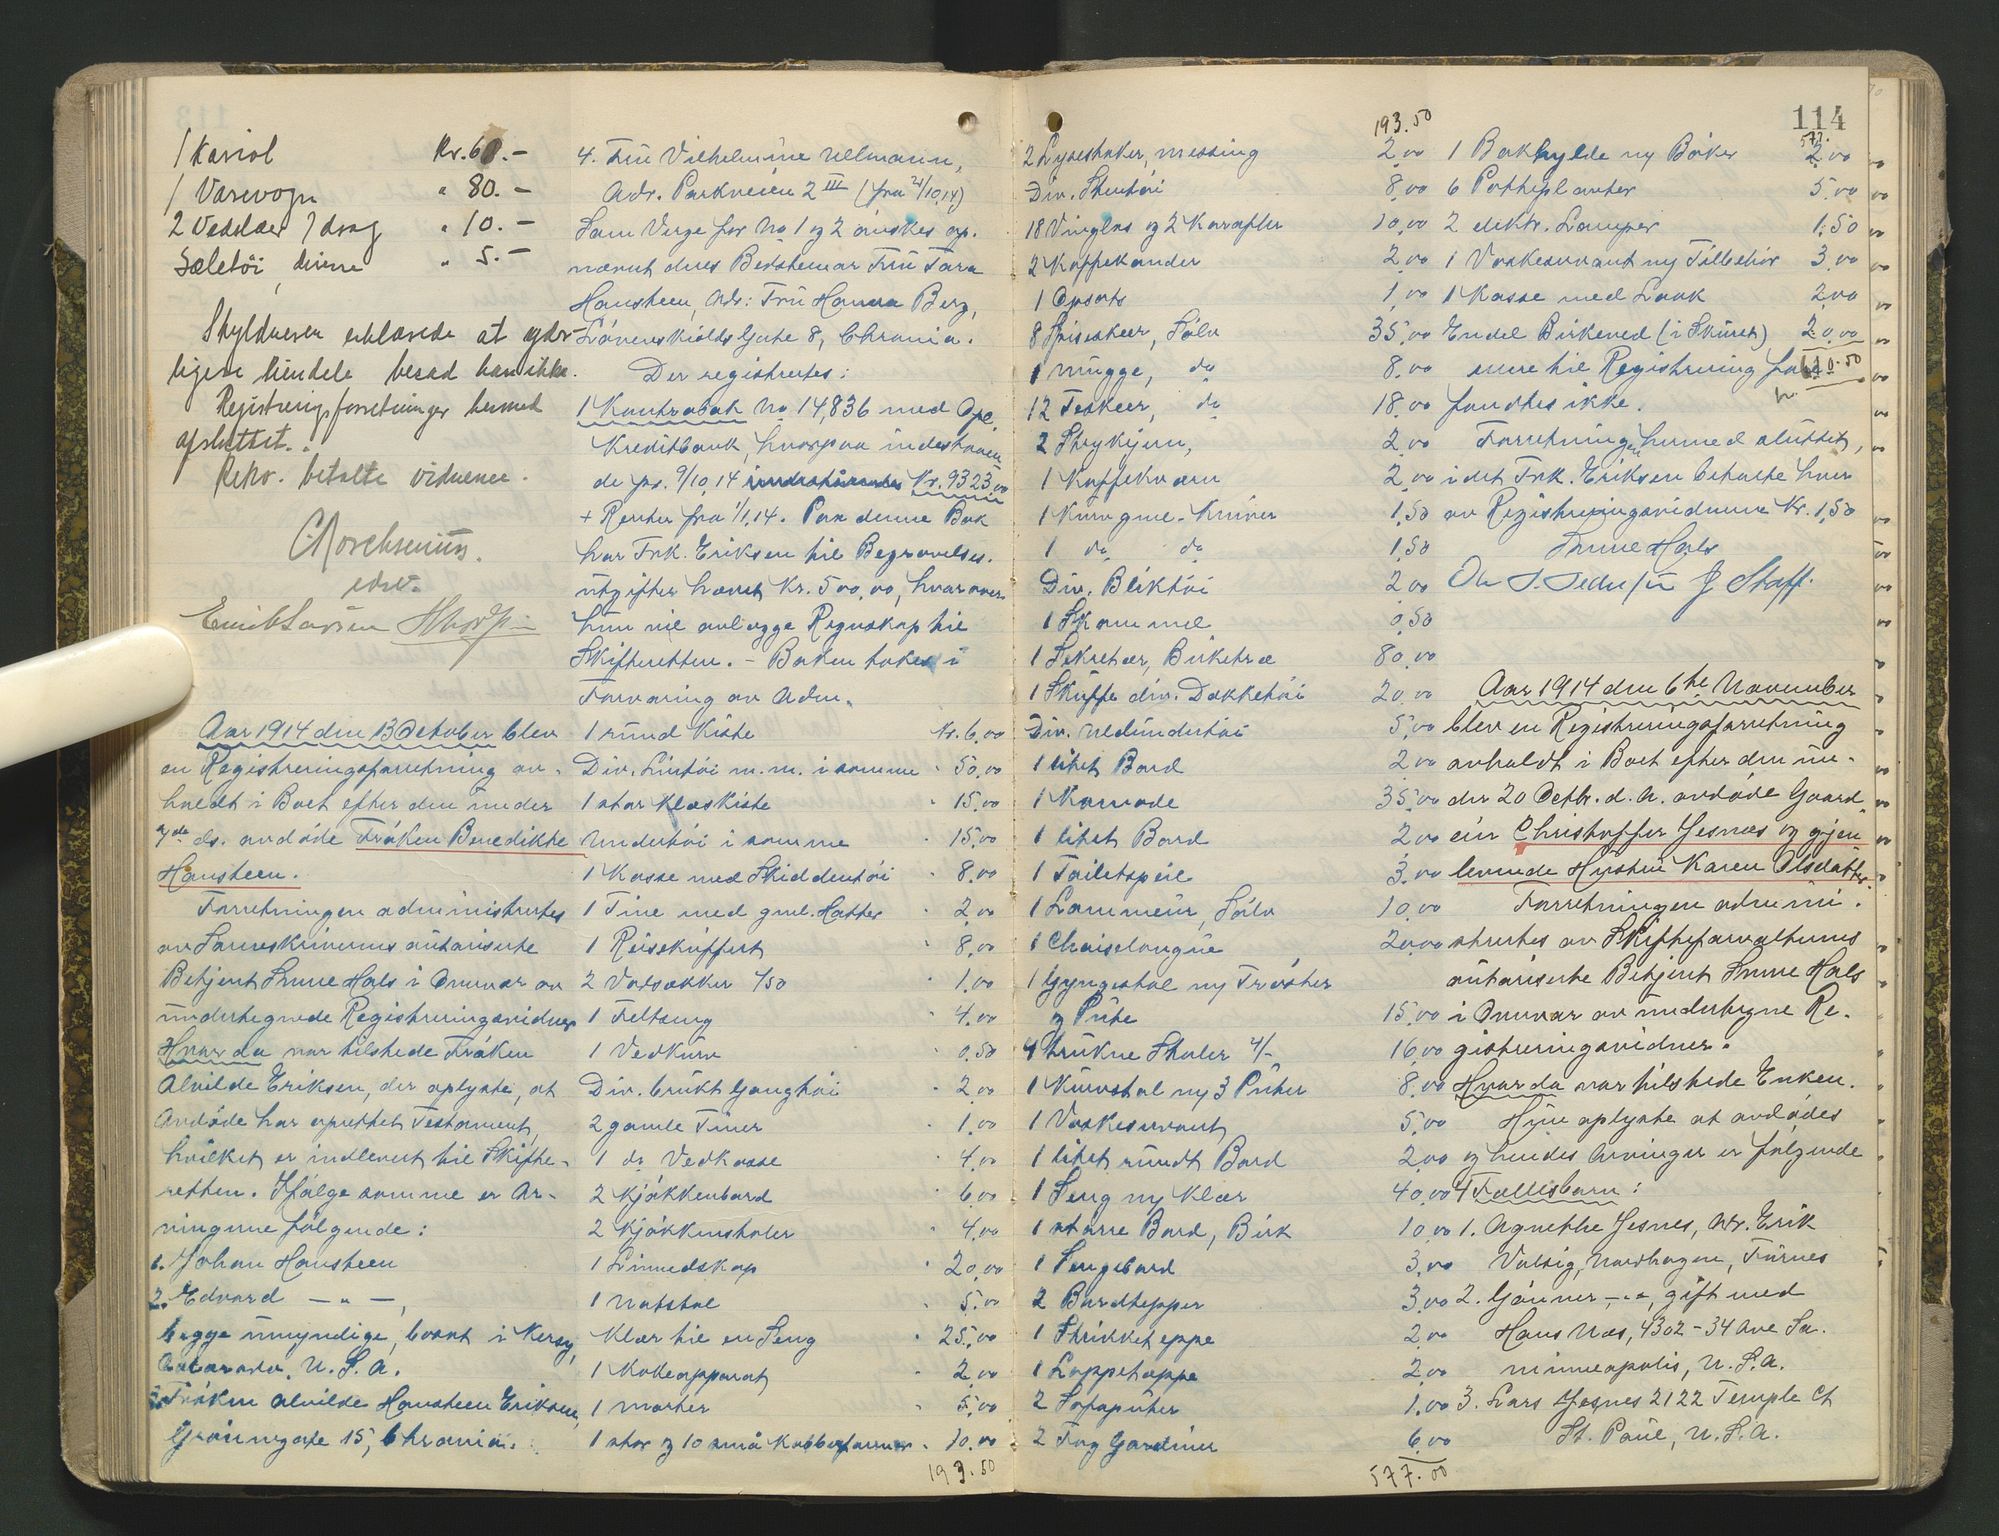 1 Karriol Kr. 60.-
1 Varevogn " 80.-
2 Vedslæer / drag " 10.-
Sæletöi, diverse " 5.-
Skyldneren erklærede at yder-
ligere eiendele besad han ikke.
Registreringsforretningen hermed
afsluttet.
Rekv. betalte vidnerne.
Aar 1914 den 13 October blev
en Registreringsforretning av-
holdt i Boet efter den under
7de ds. avdöde Fröken Benedikte
Hansteen.
Forretningen administrertes
av Sorenskriverens autoriserte
Betjent Smme Hals i Overvær av
undertegnede Registreringsvidner
Hvor da var tilstede Fröken
Alvilde Eriksen, der oplyste, at
Avdöde har oprettet Testament,
hvilket er indlevert til Skifte-
retten. Ifölge samme er Ar-
vingerne fölgende:
1. Johan Hansteen
2. Edvard — " —,
begge umyndige, bosat i Kersy,
Colorado, U. S. A.
3. Fröken Alvilde Hansteen Eriksen,
Grönnegate 15, Chrania.
4. Fru Vilhelmine Ullmann,
Adr. Parkveien 2 III (fra 21/10.14)
Som Verge for No 1 og 2 önskes op-
nævnt deres Bedstemor Fru Tara
Hansteen, Adr: Fru Hanna Berg,
Lövenskiolds Gate 8, Chrania.
Der registrertes:
1 Kontrabok No 14,836 med Opl.
Kreditbank, hvorpaa indestaaen-
de pr. 9/10.14 Kr. 9323,00
+ Renter fra 1/1.14. Paa denne Bok
har Frk. Eriksen til Begravelses-
utgifter hævet Kr. 500,00, hvorover
hun vil avlægge Regnskap til
Skifteretten. - Boken tokes i
Forvaring av Adm.
1 rund Kiste Kr. 6,00
Div. Lintöi m.m. i samme " 50,00
1 stor Klæskiste " 15,00
Undertöi i samme " 15,00
1 Kasse med Skiddentöi " 8,00
1 Tine med gml. Hatter " 2,00
1 Reisekuffert " 8,00
2 Vadsækker /50 " 1,00
1 Feltseng " 4,00
1 Vedkurv " 0,50
Div. brukt Gangtöi " 2,00
2 gamle Tiner " 1,00
1 do Vedkasse " 4,00
2 Kjökkenbord " 6,00
2 Kjökkenstoler " 4,00
1 Linnedskap " 20,00
1 Natstol " 5,00
Klær til en Seng " 25,00
1 Kokeapparat " 2,00
1 Morter " 5,00
1 stor og 10 små Kobberformer " 10,00
193.50
114
193.50
2 Lysestaker, messing 2,00
Div. Stentöi 8,00
18 Vinglas og 2 Karafler 10,00
2 Kaffekander 2,00
1 Opsats 1,00
8 Spiseskeer, Sölv 35,00
1 Mugge, do 8,00
12 Teskeer, do 18,00
2 Strykjern, 2,00
1 Kaffekværn 2,00
1 Kurv gml. Kniver 1,50
1 do do 1,50
Div. Bliktöi 2,00
1 Skammel 0,50
1 Sekretær, Birketræ 80,00
1 Skuffe div. Dækketöi 20,00
Div. Uldundertöi 5,00
1 litet Bord 2,00
1 Komode 35,00
1 litet Bord 2,00
1 Toiletspeil 3,00
1 Lommeur, Sölv 10,00
1 Chaiselongue 20,00
1 Gyngestol m/ Trækker
og Pute 15,00
4 trukne Stoler 4/- 16,00
1 Kurvstol m/ 3 Puter 8,00
1 Vaskeservant 5,00
1 litet rundt Bord 2,00
1 Seng m/ Klær 40,00
1 större Bord, Birk 10,00
1 Sengebord 3,00
2 Bordtepper 3,00
1 Strikketeppe 2,00
1 Lappeteppe 2,00
2 Sofaputer 1,00
2 Fag Gardiner 6,00
577.00
577.
1 Bokhylde m/ Böker 2,00
6 Potteplanter 5,00
2 elektr. Lamper 1,50
1 Vaskeservant m/ Tilbehör 3,00
1 Kasse med Laak 2,00
Endel Birkeved (i Skuret) 20,00
mere til Registrering 610.50
fandtes ikke.
Forretningen hermed sluttet,
idet Frk. Eriksen betalte hver
av Registreringsvidnerne Kr. 1,50
Smme Hals
Aar 1914 den 6te November
blev en Registreringsforretning
avholdt i Boet efter den un-
der 20 Octbr. d. A. avdöde Gaard-
eier Christoffer Jesnes og gjen-
levende Hustru Karen Olsdatter.
Forretningen admini-
strertes av Skifteforvalterens
autoriserte Betjent Smme Hals
i Overvær av undertegne Re-
gistreringsvidner.
Hvor da var tilstede Enken.
Hun oplyste at avdödes
og hendes Arvinger er fölgende
4 Fællesbarn:
1. Agnethe Jesnes, Adr. Erik
Valsig, Nordhagen, Furnes
2. Gunner —"—, gift med
Hans Næs, 4302-34 Ave So.
Minneapolis, U. S. A.
3. Lars Jesnes 2122 Temple Ct
St. Paul, U. S. A.